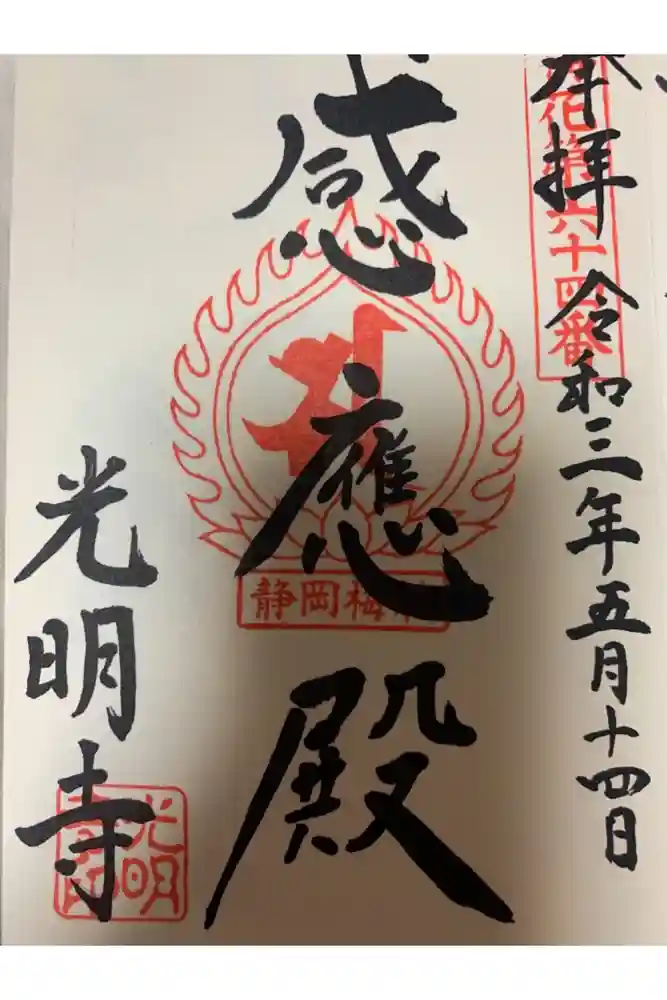 奉拝 令和三年五月十四日
花第六十四番
感應殿
静岡梅
光明寺
光明寺印